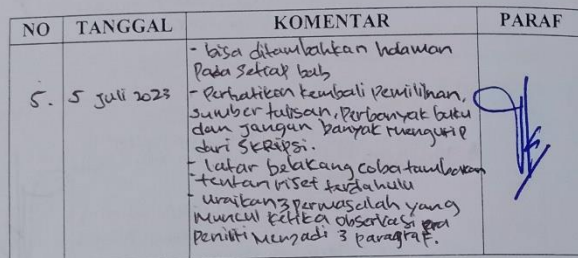 NO TANGGAL KOMENTAR PARAF
- bisa ditambahkan halaman
pada setiap bab
5. 5 Juli 2023 - Perhatikan kembali pemilihan,
sumber tulisan, Perbanyak buku
dan jangan banyak mengutip
dari SKRIPSI.
- latar belakang coba tambahkan
- tentan riset terdahulu
- uraikan 3 permasalah yang
muncul ketika observasi
peniliti menjadi 3 paragraf.